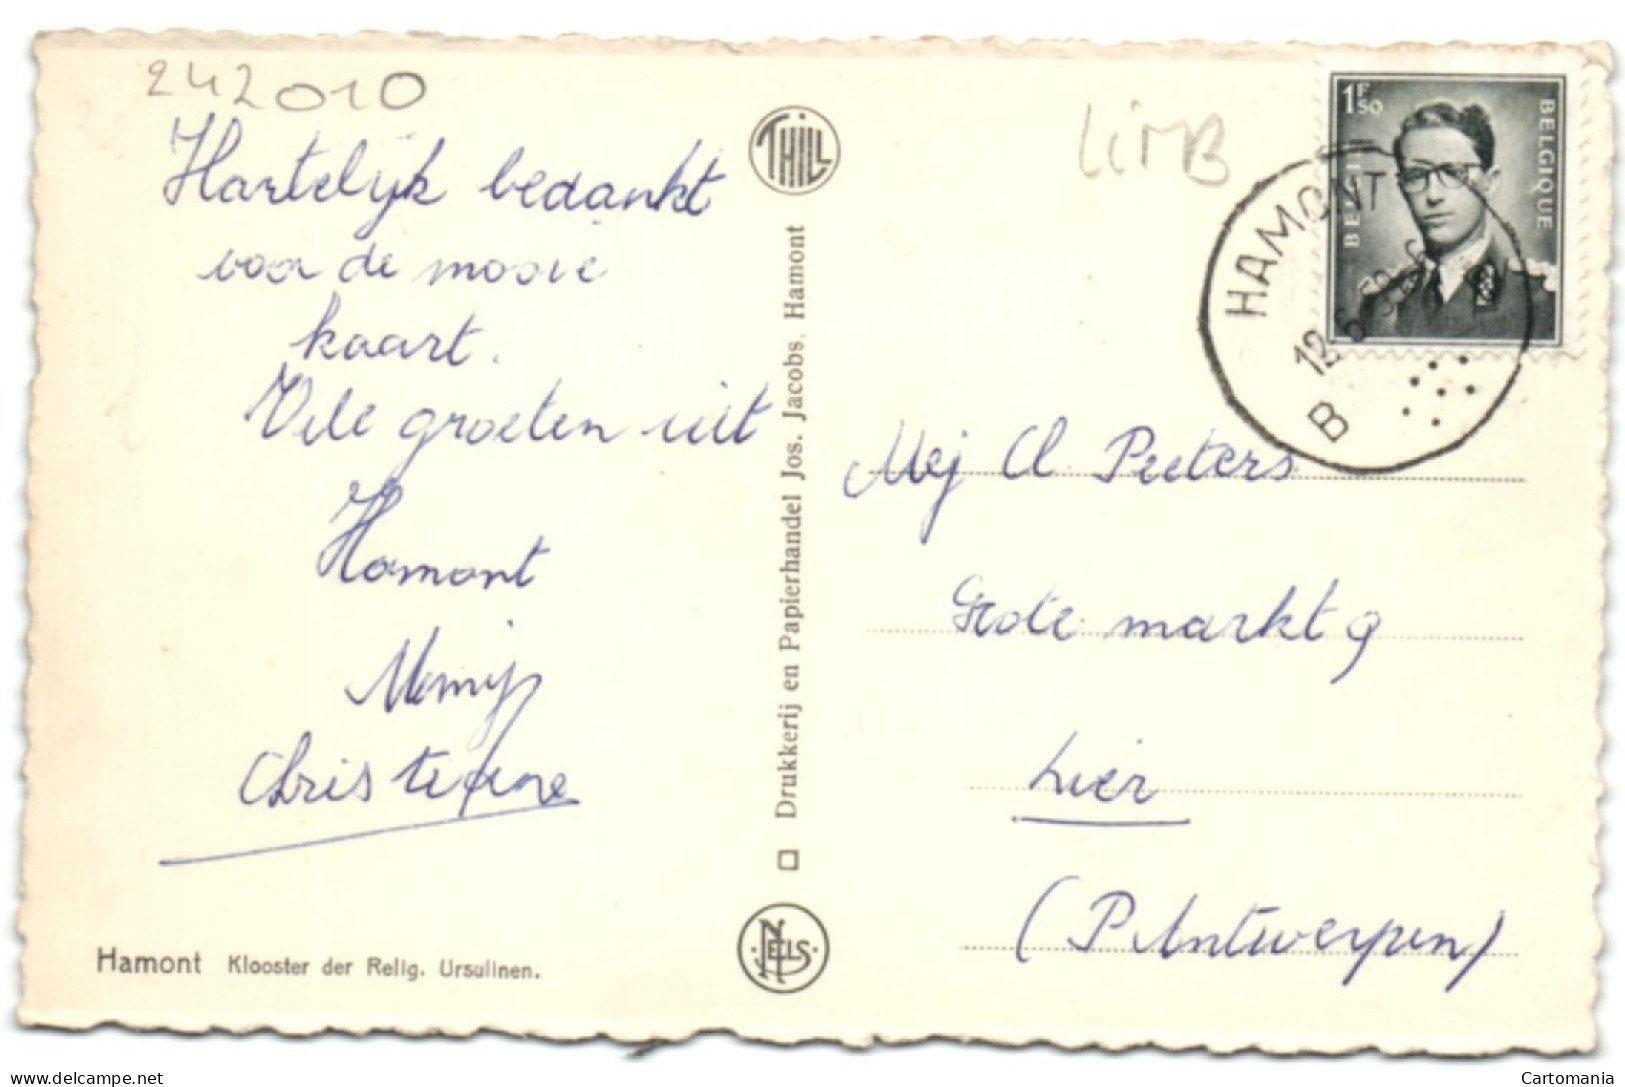 242010
Hartelijk bedankt
voor de mooie
kaart.
Vele groeten uit
Hamont
Christiane
Hamont Klooster der Relig. Ursulinen.
THILL
Drukkerij en Papierhandel Jos. Jacobs, Hamont
NELS
LiMB
1F50
BELGIQUE
HAMONT
12
B
Mej Cl. Peeters
Grote markt 9
Lier
(P. Antwerpen)
www.delcampe.net
Cartomania